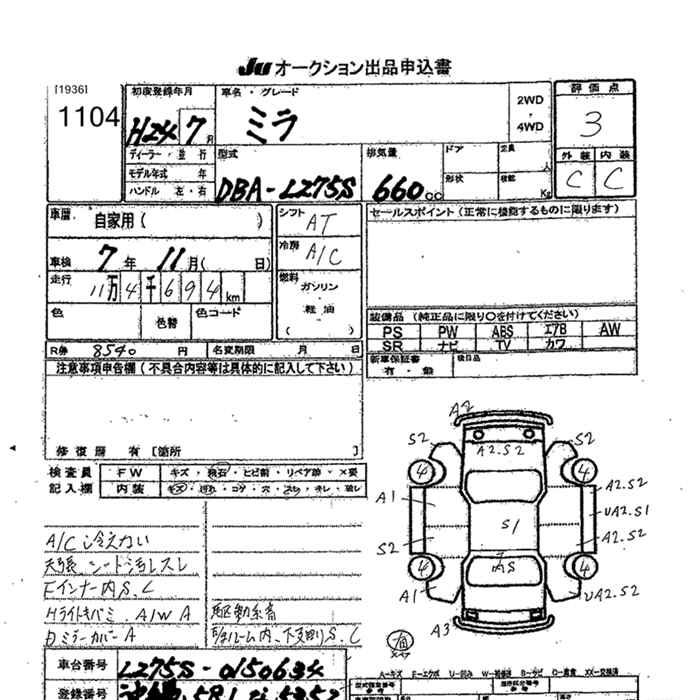 JU オークション出品申込書
[1936]
1104
初度登録年月
H24 7月
車名・グレード
ミラ
2WD
・
4WD
評価点
3
外装 内装
C C
ディーラー・並行
モデル年式 年
ハンドル 左・右
型式
DBA-L275S
排気量
660cc
ドア
形状
定員
人
Kg
車歴 自家用( )
車検 7年 11月( 日)
走行 11万4千694km
色
色替
色コード
シフト
AT
冷房
A/C
燃料
ガソリン
・
軽油
( )
セールスポイント(正常に機能するものに限ります)
装備品(純正品に限り〇を付けてください)
PS PW ABS エアB AW
SR ナビ TV カワ
新車保証書
有・無
R券 8540円 名変期限 月 日
注意事項申告欄(不具合内容等は具体的に記入して下さい)
修復歴 有[箇所 ]
検査員 FW キズ・飛石・ヒビ割・リペア跡・X要
記入欄 内装 キズ・汚れ・コゲ・穴・スレ・キレ・破レ
A/C冷えない
天張 シート汚レスレ
Fインナー内S.C
Hライトキバミ.A/W A
Dミラーカバー A
駆動系音
S.C
A2
S2
A2.S2
S2
4
4
A1
S1
A2.S2
UA2.S1
S2
A2.S2
4
4
A1
UA2.S2
A3
車台番号 L275S-0150634
登録番号
A=キズ E=エクボ U=凹み